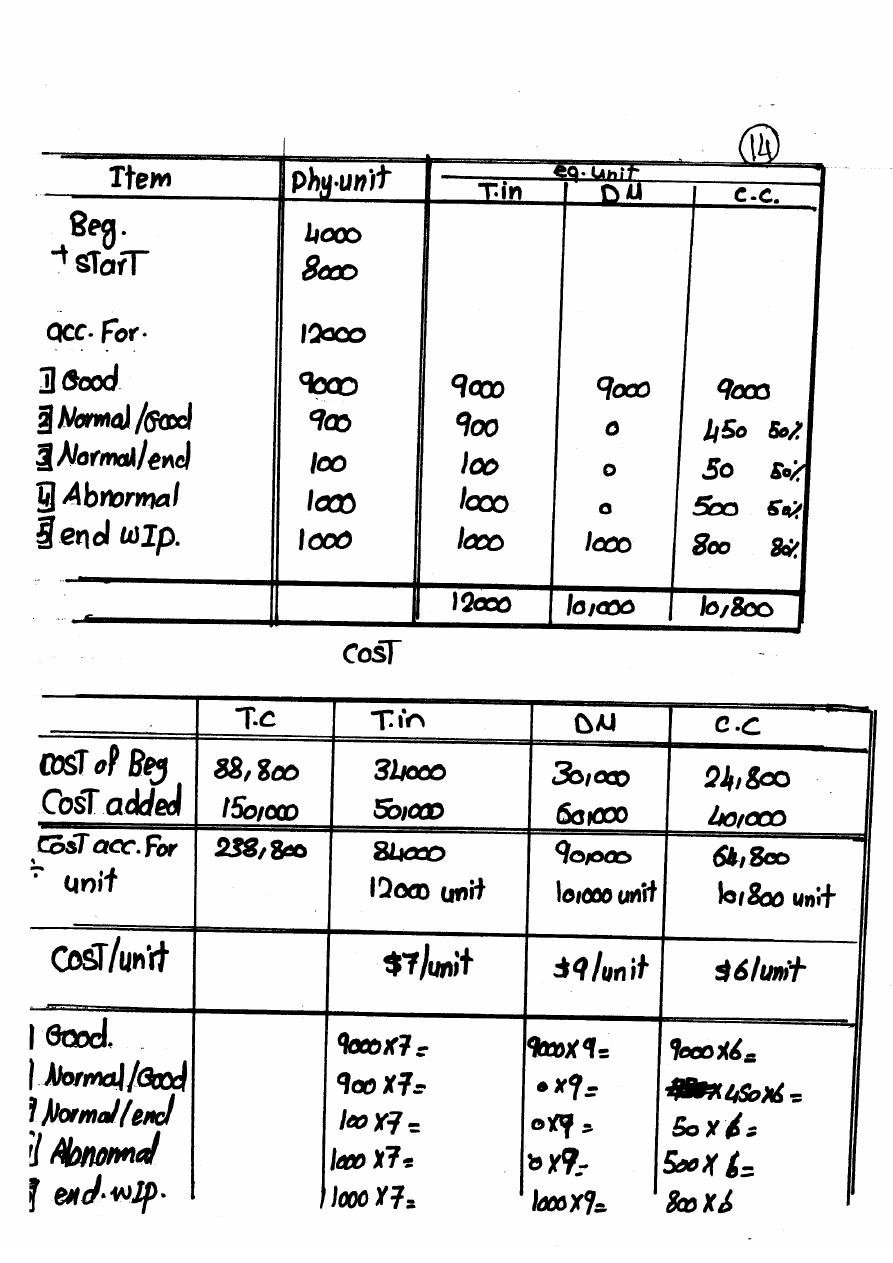 14
Item Phy.unit eq. unit
T.in DM C.C.
Beg. 4000
+ START 8000
acc. For. 12000
1 Good 9000 9000 9000 9000
2 Normal/Good 900 900 0 450 50%
3 Normal/end 100 100 0 50 50%
4 Abnormal 1000 1000 0 500 50%
5 end WIP. 1000 1000 1000 800 80%
12000 10,000 10,800
COST
T.C T.in DM C.C
COST of Beg 88,800 34000 30,000 24,800
COST added 150,000 50,000 60,000 40,000
COST acc. For 238,800 84000 90,000 64,800
÷ unit 12000 unit 10,000 unit 10,800 unit
COST/unit $7/unit $9/unit $6/unit
Good. 9000 X 7 = 9000 X 9 = 9000 X 6 =
Normal/Good 900 X 7 = 0 X 9 = X 450 X 6 =
Normal/end 100 X 7 = 0 X 9 = 50 X 6 =
Abnormal 1000 X 7 = 0 X 9 = 500 X 6 =
end. WIP. 1000 X 7 = 1000 X 9 = 800 X 6